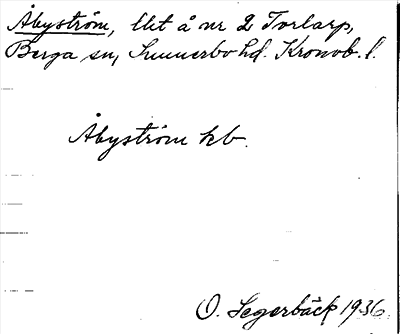 Åbyström, llt å nr 2 Torlarp,
Berga sn, Sunnerbo hd. Kronob. l.
Åbyström kb.
O. Segerbäck 1936